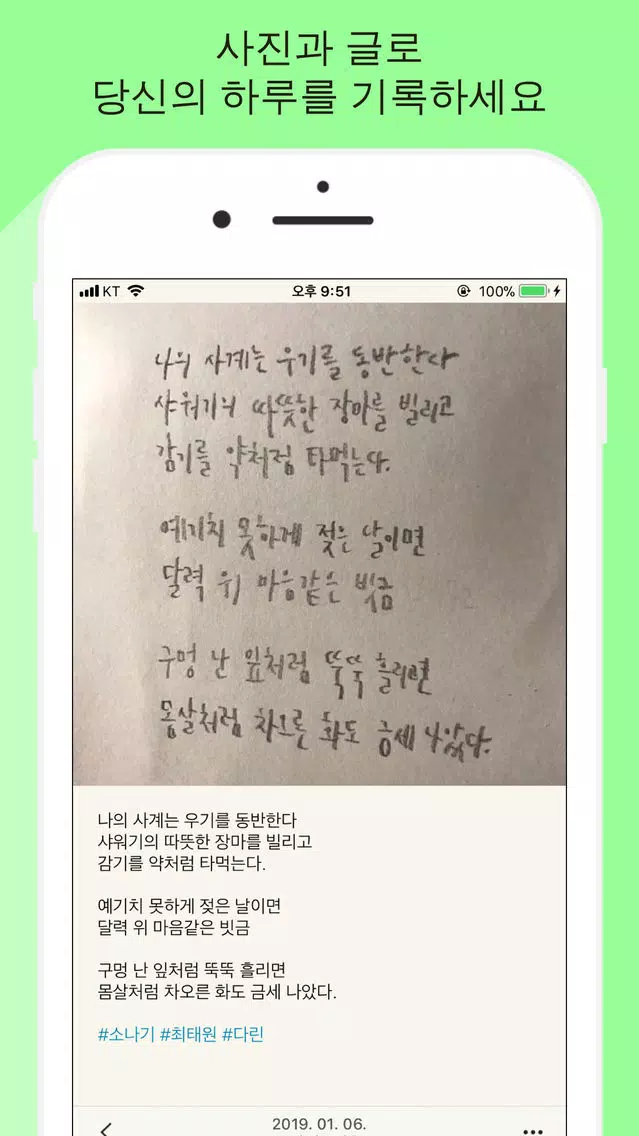 사진과 글로
당신의 하루를 기록하세요
KT
오후 9:51
100%
나의 사계는 우기를 동반한다
샤워기의 따뜻한 장마를 빌리고
감기를 약처럼 타먹는다.
예기치 못하게 젖은 날이면
달력 위 마음같은 빗금
구멍 난 잎처럼 뚝뚝 흘리면
몸살처럼 차오른 화도 금세 나았다.
나의 사계는 우기를 동반한다
샤워기의 따뜻한 장마를 빌리고
감기를 약처럼 타먹는다.
예기치 못하게 젖은 날이면
달력 위 마음같은 빗금
구멍 난 잎처럼 뚝뚝 흘리면
몸살처럼 차오른 화도 금세 나았다.
#소나기 #최태원 #다린
2019. 01. 06.